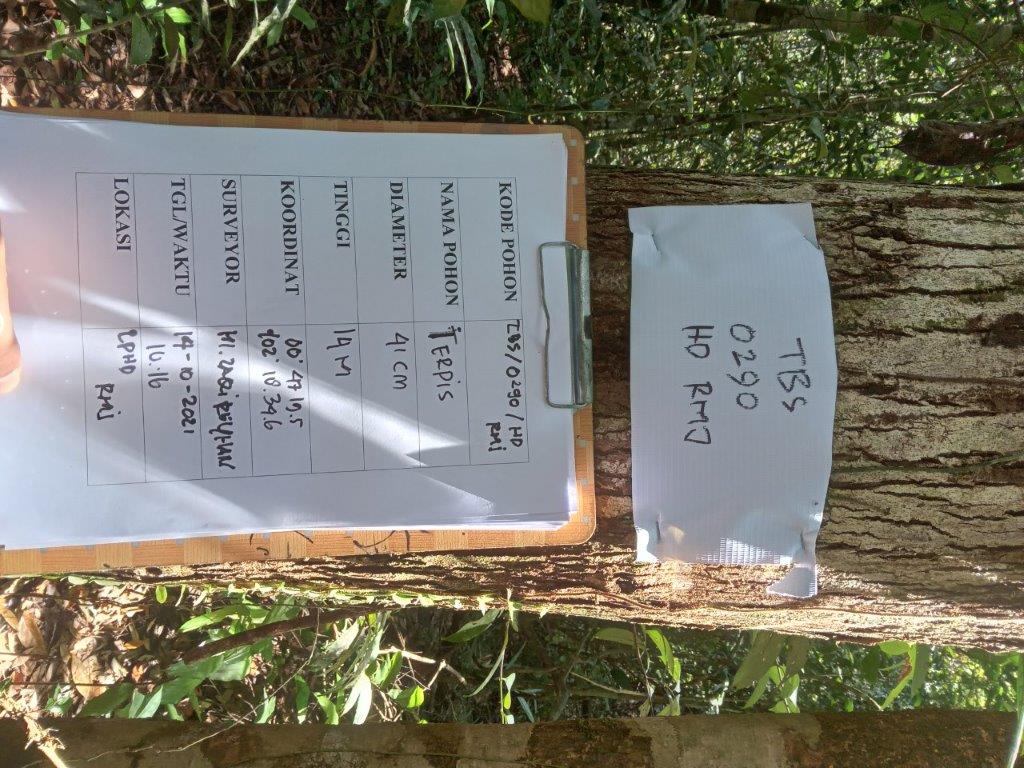 TBS
0290
HD RMJ
KODE POHON TBS/0290/HD
RMJ
NAMA POHON TERPIS
DIAMETER 41 CM
TINGGI 14 M
KOORDINAT 00° 47 19.5
102° 18.34.6
SURVEYOR M. ZAQI REYHAN
TGL/WAKTU 14-10-2021
10.16
LOKASI LPHD
RMJ